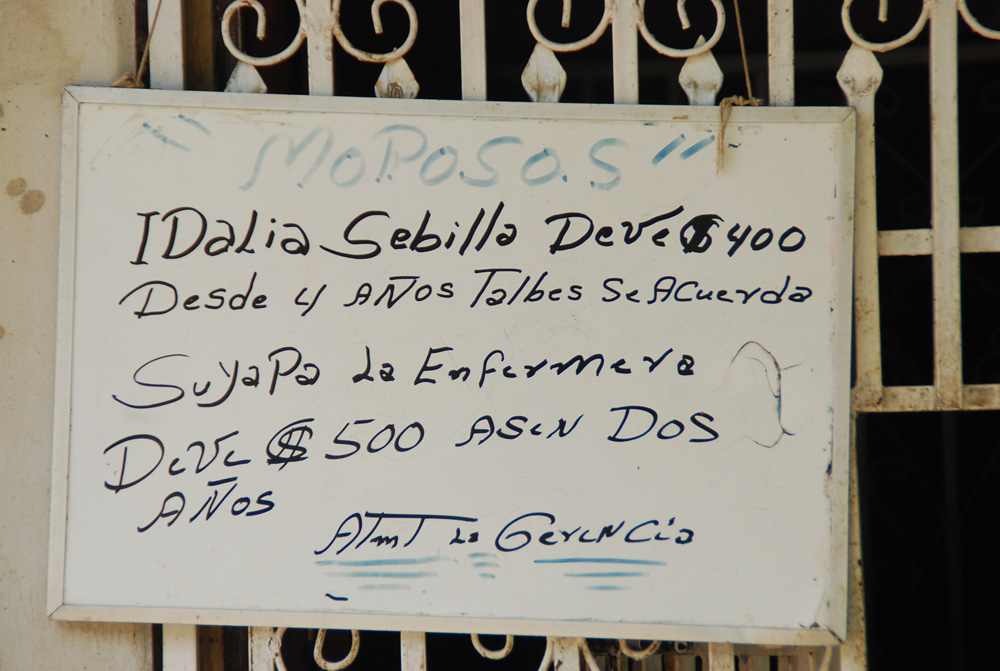 "MOROSOS"
IDalia Sebilla Deve $400
Desde 4 AÑOS Talbes Se Acuerda
Suyapa La Enfermera
Deve $500 ASEN DOS
AÑOS
ATmT La Gerencia